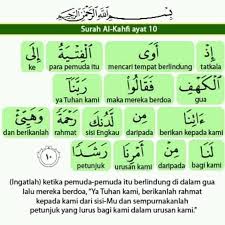 بِسْمِ اللَّهِ الرَّحْمَٰنِ الرَّحِيمِ
Surah Al-Kahfi ayat 10
إِذْ أَوَى ٱلْفِتْيَةُ إِلَى
tatkala mencari tempat berlindung para pemuda itu ke
ٱلْكَهْفِ فَقَالُوا۟ رَبَّنَآ
gua maka mereka berdoa ya Tuhan kami
ءَاتِنَا مِن لَّدُنكَ رَحْمَةً وَهَيِّئْ
berikan kepada kami daripada sisi Engkau rahmat dan berikanlah
لَنَا مِنْ أَمْرِنَا رَشَدًا ١٠
bagi kami daripada urusan kami petunjuk
(Ingatlah) ketika pemuda-pemuda itu berlindung di dalam gua
lalu mereka berdoa, "Ya Tuhan kami, berikanlah rahmat
kepada kami dari sisi-Mu dan sempurnakanlah
petunjuk yang lurus bagi kami dalam urusan kami."